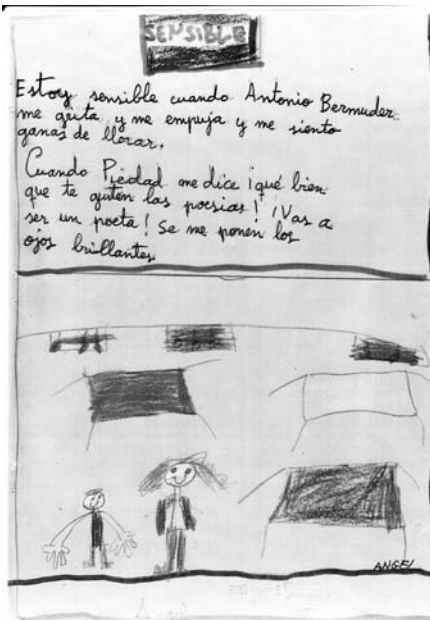 SENSIBLE
Estoy sensible cuando Antonio Bermudez
me grita y me empuja y me siento
ganas de llorar.
Cuando Piedad me dice ¡qué bien
que te guten las poesias! ¡Vas a
ser un poeta! Se me ponen los
ojos brillantes
ANGEL